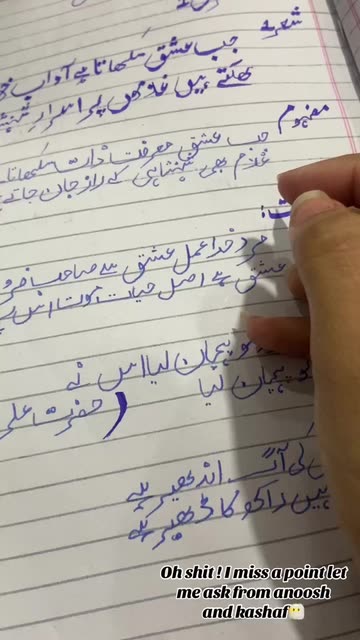 شعر ۲
جب عشق سکھاتا ہے آداب
کھلتے ہیں غلاموں پر اسرار
مفہوم جب عشق معرفت ذات سکھاتا
غلام بھی شہنشاہی کے راز جان جاتے
مرد خدا عمل عشق سے صاحب فروغ
عشق ہے اصل حیات موت اس
پہچان لیا اس نے
پہچان لیا
(حضرت علی
کی آگ اندھیر ہے
راکھ کا ڈھیر ہے
Oh shit ! I miss a point let
me ask from anoosh
and kashaf😶